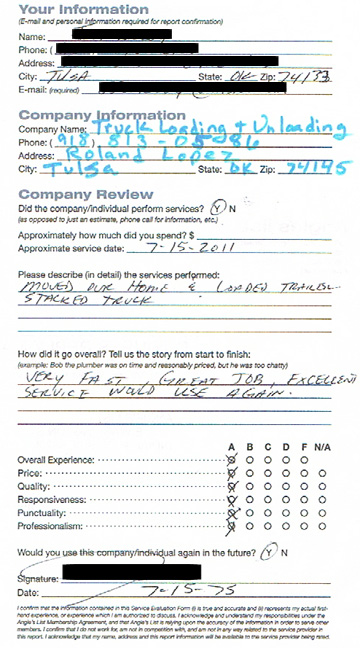 Your Information
(E-mail and personal information required for report confirmation)
Name:
Phone: (
Address:
City: TULSA State: OK Zip: 74133
E-mail: (required)
Company Information
Company Name: Truck Loading & Unloading
Phone: (918) 813-0586
Address: Roland Lopez
City: Tulsa State: OK Zip: 74145
Company Review
Did the company/individual perform services? Y N
(as opposed to just an estimate, phone call for information, etc.)
Approximately how much did you spend? $
Approximate service date: 7-15-2011
Please describe (in detail) the services performed:
MOVED OUR HOME & LOADED TRAILER
STACKED TRUCK
How did it go overall? Tell us the story from start to finish:
(example: Bob the plumber was on time and reasonably priced, but he was too chatty)
VERY FAST, GREAT JOB, EXCELLENT
SERVICE WOULD USE AGAIN.
A B C D F N/A
Overall Experience:
Price:
Quality:
Responsiveness:
Punctuality:
Professionalism:
Would you use this company/individual again in the future? Y N
Signature:
Date: 7-15-75
I confirm that the information contained in this Service Evaluation Form (i) is true and accurate and (ii) represents my actual first-
hand experience, or experience which I am authorized to discuss. I acknowledge and understand my responsibilities under the
Angie's List Membership Agreement, and that Angie's List is relying upon the accuracy of the information in order to serve other
members. I confirm that I do not work for, am not in competition with, and am not in any way related to the service provider in
this report. I acknowledge that my name, address and this report information will be available to the service provider being rated.